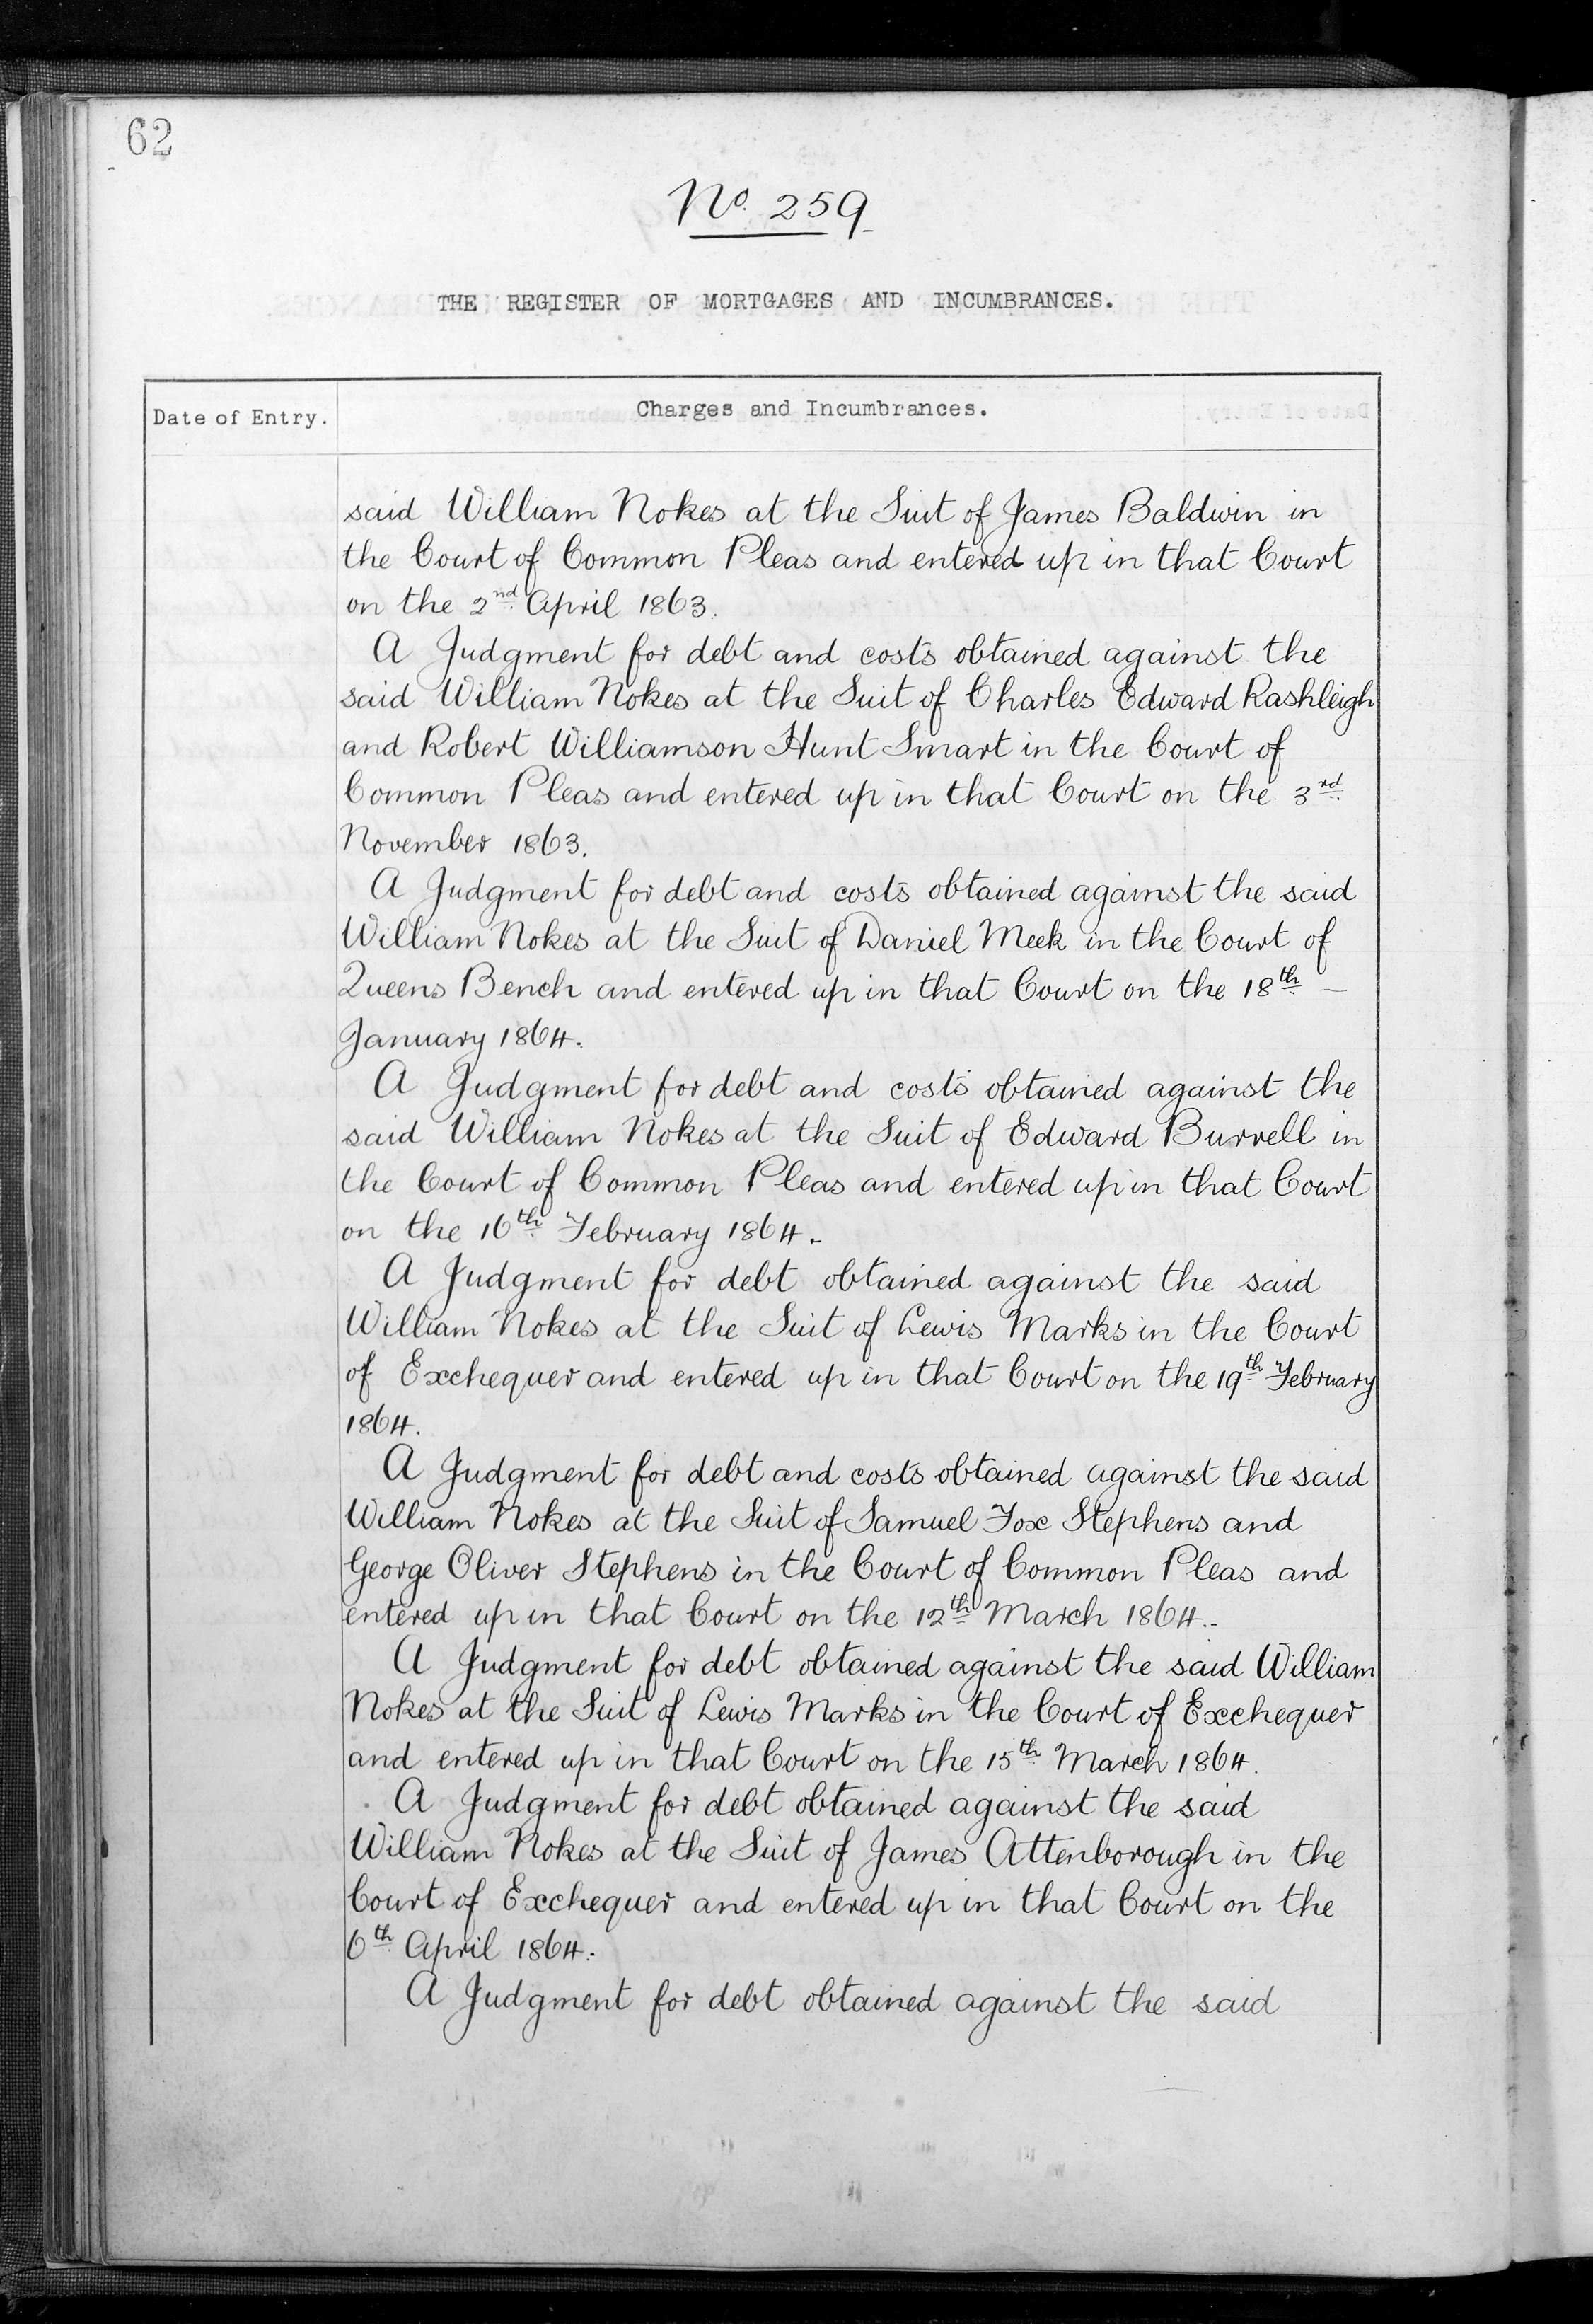 62
No. 259
THE REGISTER OF MORTGAGES AND INCUMBRANCES.
Date of Entry.
Charges and Incumbrances.
said William Nokes at the Suit of James Baldwin in
the Court of Common Pleas and entered up in that Court
on the 2nd April 1863.
A Judgment for debt and costs obtained against the
said William Nokes at the Suit of Charles Edward Rashleigh
and Robert Williamson Hunt Smart in the Court of
Common Pleas and entered up in that Court on the 3rd
November 1863.
A Judgment for debt and costs obtained against the said
William Nokes at the Suit of Daniel Meek in the Court of
Queens Bench and entered up in that Court on the 18th —
January 1864.
A Judgment for debt and costs obtained against the
said William Nokes at the Suit of Edward Burrell in
the Court of Common Pleas and entered up in that Court
on the 16th February 1864.
A Judgment for debt obtained against the said
William Nokes at the Suit of Lewis Marks in the Court
of Exchequer and entered up in that Court on the 19th February
1864.
A Judgment for debt and costs obtained against the said
William Nokes at the Suit of Samuel Fox Stephens and
George Oliver Stephens in the Court of Common Pleas and
entered up in that Court on the 12th March 1864.
A Judgment for debt obtained against the said William
Nokes at the Suit of Lewis Marks in the Court of Exchequer
and entered up in that Court on the 15th March 1864.
A Judgment for debt obtained against the said
William Nokes at the Suit of James Attenborough in the
Court of Exchequer and entered up in that Court on the
6th April 1864.
A Judgment for debt obtained against the said